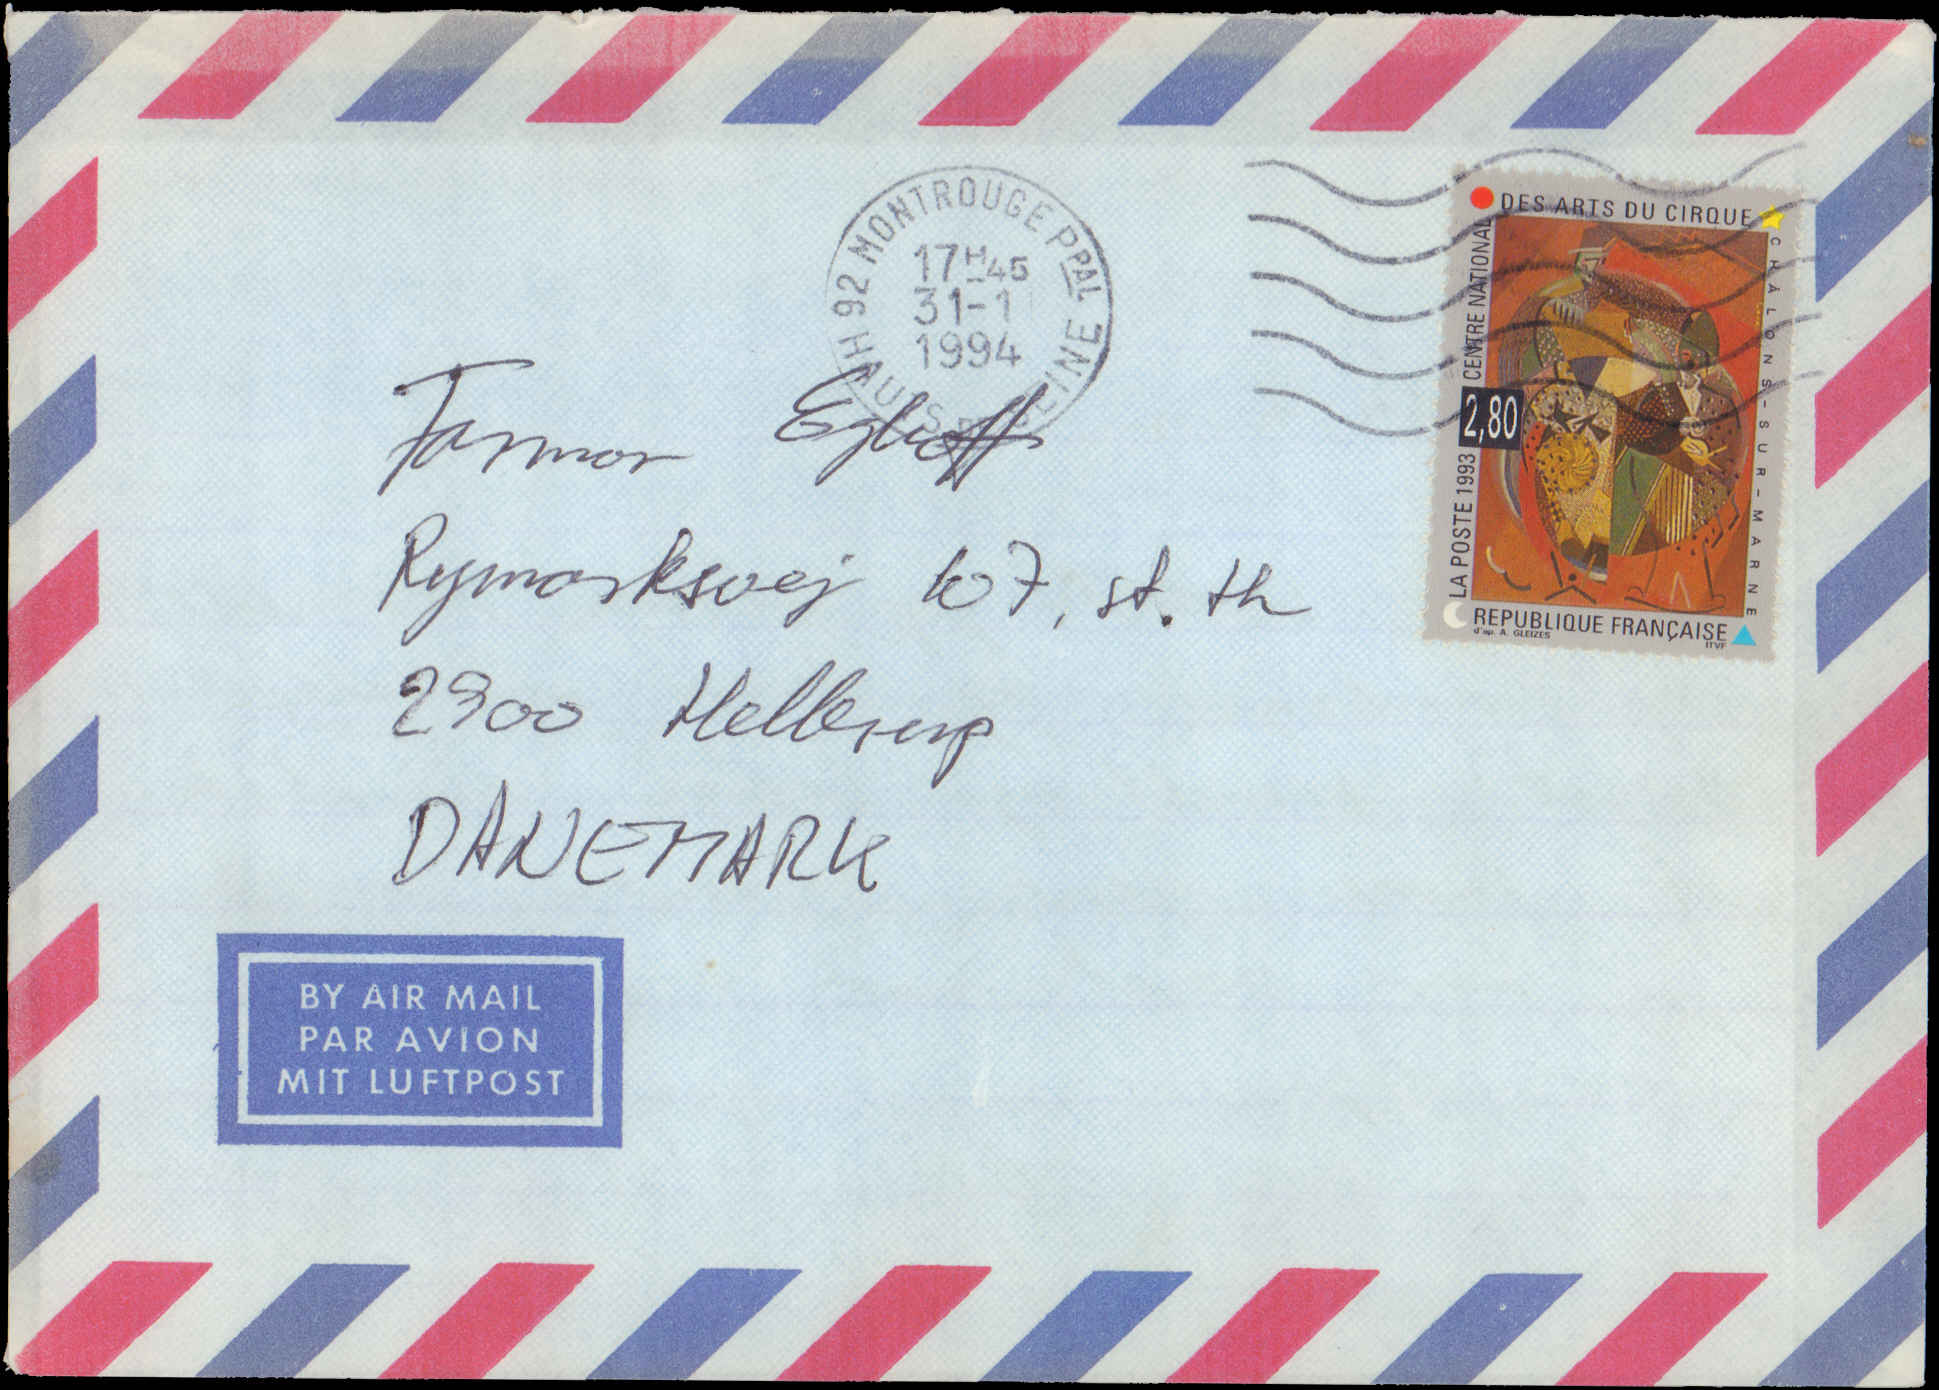 92 MONTROUGE PPAL
17H45
31-1
1994
HAUTS DE SEINE
DES ARTS DU CIRQUE
CENTRE NATIONAL
CHÂLONS-SUR-MARNE
2,80
LA POSTE 1993
REPUBLIQUE FRANÇAISE
d'ap. A. GLEIZES
ITVF
Farmor
Rymarksvej 107, st. th
2900 Hellerup
DANEMARK
BY AIR MAIL
PAR AVION
MIT LUFTPOST